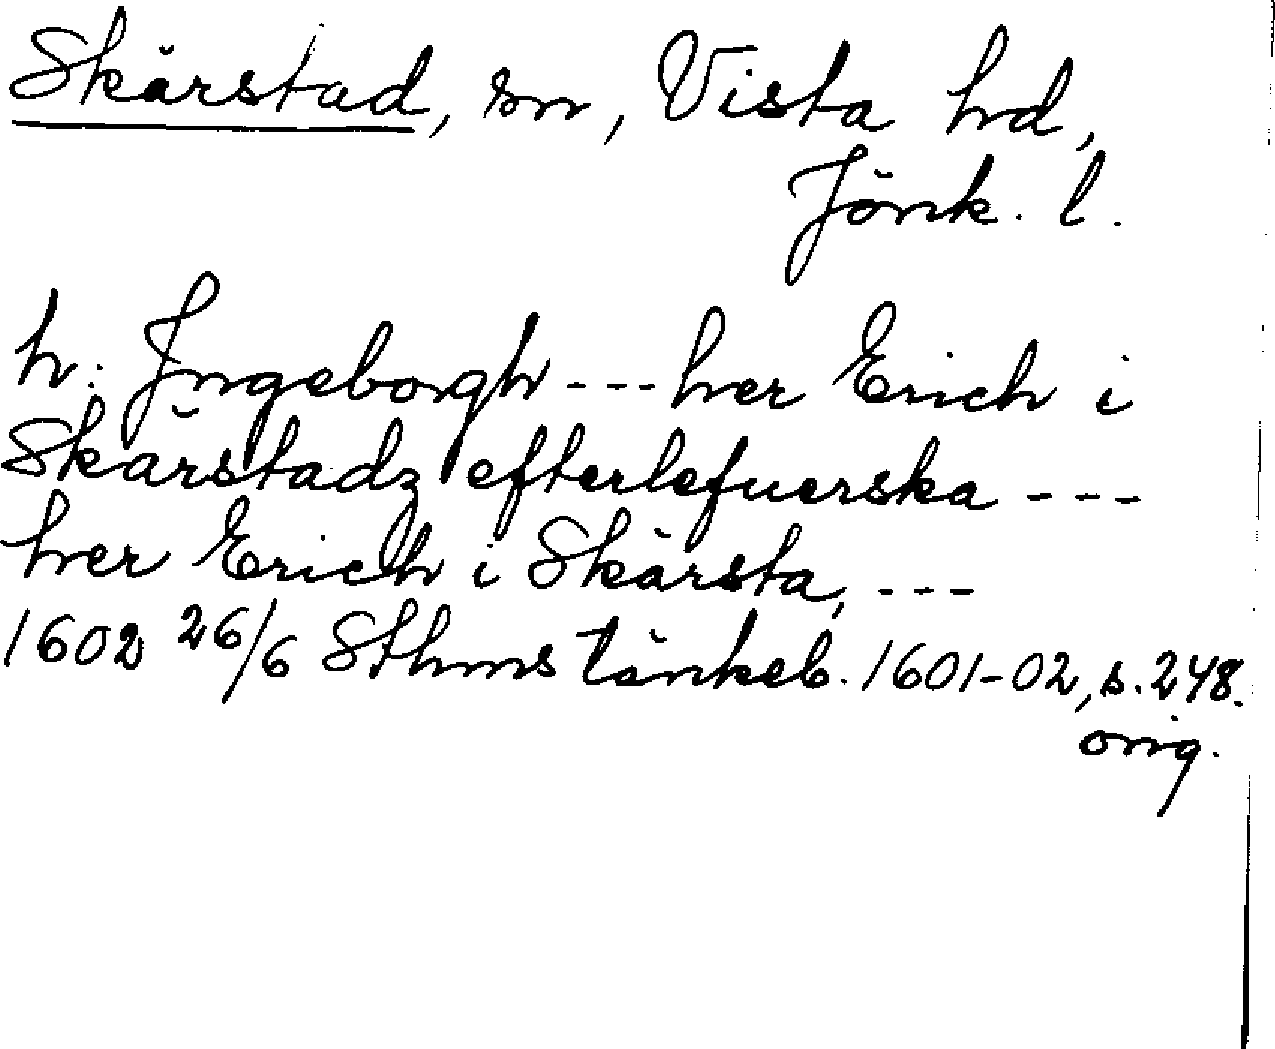 Skärstad, sn, Vista hd,
Jönk. l.
h. Jngeborgh --- her Erich i
Skärstadz efterlefuerska ---
her Erich i Skärsta, ---
1602 26/6 Sthms tänkeb. 1601-02, s. 248.
orig.